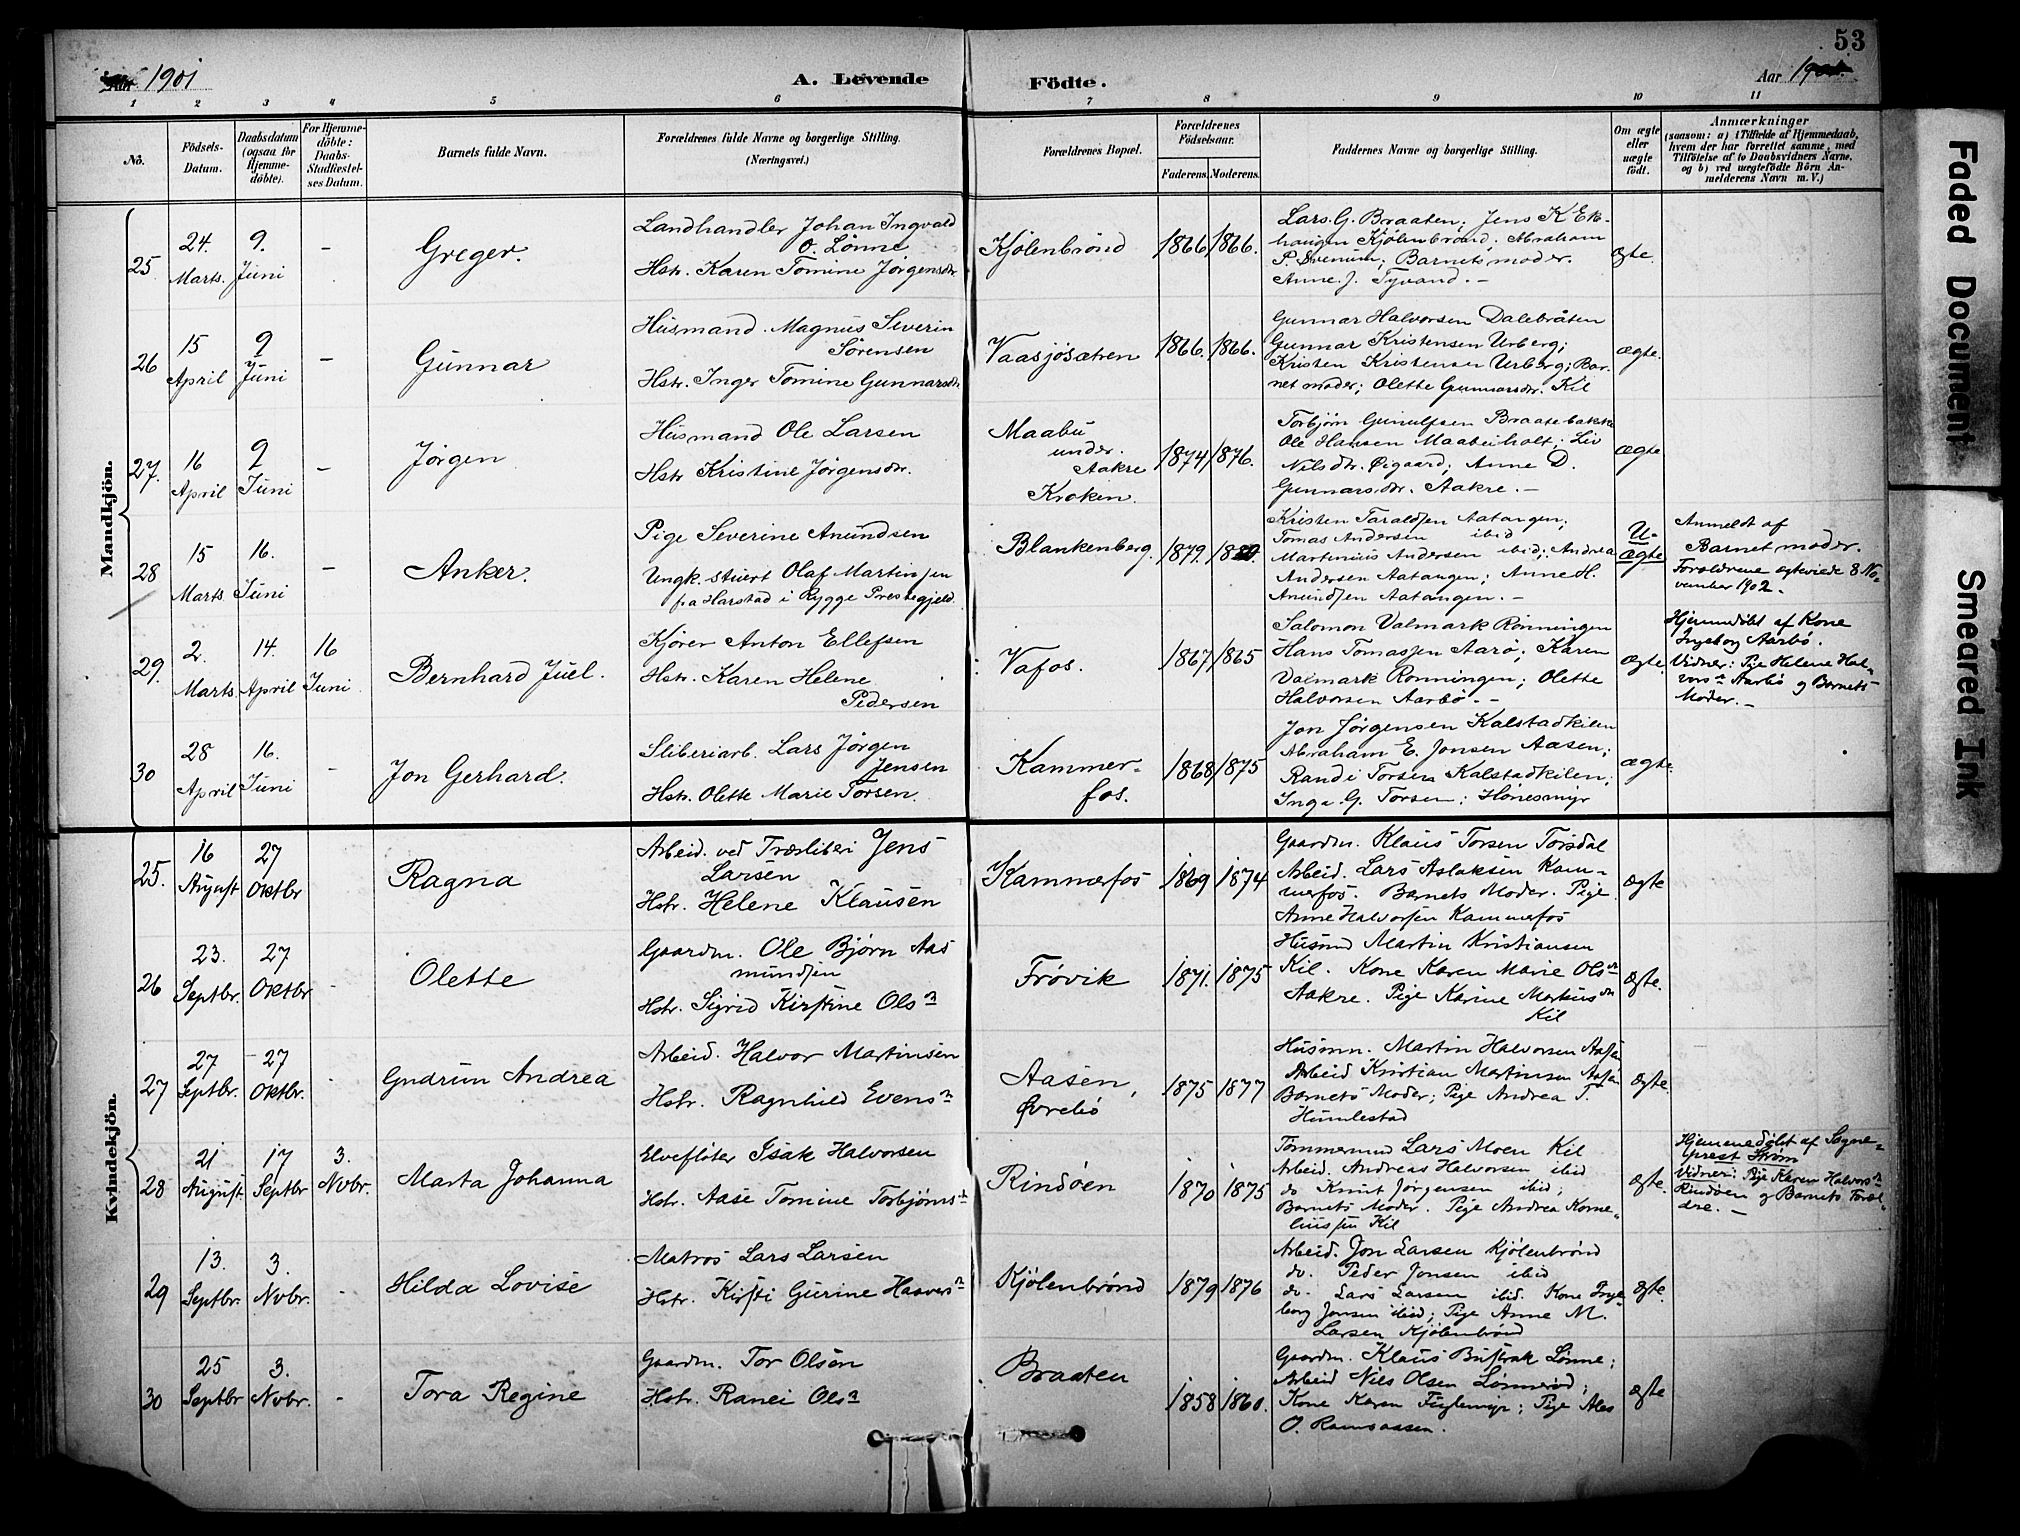 53
Aar 1901
A. Levende Födte.
Aar 1901.
1 2 3 4 5 6 7 8 9 10 11
No.
Födsels-
Datum.
Daabsdatum
(ogsaa for
Hjemme-
döbte).
For Hjemme-
döbte:
Daabs-
Stadfæstel-
ses Datum.
Barnets fulde Navn.
Forældrenes fulde Navne og borgerlige Stilling.
(Næringsvei.)
Forældrenes Bopæl.
Forældrenes
Födselsaar.
Faderens. Moderens.
Faddernes Navne og borgerlige Stilling.
Om ægte
eller
uægte
födt.
Anmærkninger
(saasom: a) i Tilfælde af Hjemmedaab,
hvem der har forrettet samme, med
Tilföielse af to Daabsvidners Navne,
og b) ved uægtefödte Börn An-
melderens Navn m. V.)
Mandkjön.
25
24.
Marts.
9.
Juni
-
Greger.
Landhandler Johan Ingvald
O. Lønne
Hstr. Karen Tomine Jørgensdr
Kjölenbrönd
1866 1866.
Lars. G. Braaten; Jens K Ek-
haugen Kjölenbrönd; Abraham
P. Svenum; Barnets moder.
Anne. J. Tyvand. -
ægte.
26
15
April
9
Juni
-
Gunnar
Husmand. Magnus Severin
Sörensen
Hstr. Inger Tomine Gunnarsdr.
Vaasjösætren
1866. 1866.
Gunnar Halvorsen Dalebråten
Gunnar Kristensen Urberg;
Kristen Kristensen Urberg; Bar-
net moder; Olette Gunnarsdr. Kil
ægte.
27.
16
April
9
Juni
-
Jörgen
Husmand Ole Larsen
Hstr Kristine Jörgensdr.
Maabu
under.
Aakre
Kroken.
1874 1876.
Torbjørn Gunulfsen Braatebakke
Ole Hansen Maabuholt; Liv
Nilsdr. Øigaard; Anne D.
Gunnarsdr. Aakre. -
ægte
28
15
Marts
16.
Juni
-
Anker.
Pige Severine Anundsen
Ungk. stuert Olaf Martinsen
fra Harstad i Rygge Prestegjeld
Blankenberg.
1879. 1880.
Kristen Taraldsen Aatangen;
Tomas Andersen ibid
Martinius Andersen ibid; Andrea
Andersen Aatangen; Anne H.
Anundsen Aatangen. -
U-
ægte
Anmeldt af
Barnet moder.
Forældrene ægteviede 8 No-
vember 1902.
29.
2.
Marts
14.
April
16
Juni
Bernhard Juel.
Kjörer Anton Ellefsen
Hstr. Karen Helene
Pedersen
Vafos.
1867 1865
Salomon Valmark Rönningen
Hans Tomassen Aarö; Karen
Valmark Rönningen; Olette
Halvorsen Aarbö. -
ægte
Hjemmedöbt af Kone
Ingeborg Aarbö.
Vidner: Pige Helene Hal-
vorsn Aarbö og Barnets
Moder. -
30
28
April
16.
Juni
-
Jon Gerhard.
Sliberiarb. Lars Jörgen
Jensen
Hstr. Olette Marie Torsen.
Kammer-
fos.
1868 1875
Jon Jörgensen Kalstadkilen
Abraham E. Jonsen Aasen;
Randi Torsen Kalstadkilen;
Inga. G. Torsen; Hönesmyr
ægte.
Kvindekjön.
25.
16
August
27
Oktbr
Ragna
Arbeid. ved Træsliberi Jens
Larsen
Hstr. Helene Klausen
Kammerfos
1869 1874
Gaardm. Klaus Torsen Torsdal
Arbeid. Lars Aslaksen Kam-
merfos. Barnets Moder. Pige
Anne Halvorsen Kammerfos
ægte
26
23.
Septbr.
27
Oktbr
-
Olette
Gaardm. Ole Bjørn Aas
mundsen
Hstr. Sigrid Kirstine Olsn
Frövik
1871. 1875
Husmd Martin Kristiansen
Kil. Kone Karen Marie Olsn
Aakre. Pige Karine Markusdn
Kil
ægte.
27
27
Septbr.
27
Oktbr.
Gudrun Andrea
Arbeid. Halvor Martinsen
Hstr. Ragnhild Evensn
Aasen,
Øvrebö
1875 1877
Husmn. Martin Halvorsen Aasen
Arbeid Kristian Martinsen Aasen
Barnets Moder; Pige Andrea T.
Humlestad
ægte.
28
21
August.
17
Septbr
3.
Nvbr.
Marta Johanna
Elveflöter Isak Halvorsen
Hstr. Aase Tomine Torbjørnsn
Rindöen
1870 1875
Tømmermd Lars Moen Kil
Arbeid. Andreas Halvorsen ibid
do Knut Jørgensen ibid;
Barnets Moder. Pige Andrea Korne-
liussen Kil
ægte.
Hjemmedöbt af Sogne-
prest Strøm
Vidner: Pige Karen Halvorsn
Rindöen og Barnets Foræl-
dre. -
29
13.
Septbr.
3.
Nvbr.
-
Hilda Lovise
Matros Lars Larsen
Hstr. Kirsti Gurine Haaversn
Kjölenbrönd
1879 1876
Arbeid. Jon Larsen Kjölenbrönd
do. Peder Jonsen ibid
do. Lars Larsen ibid. Kone Inge-
borg Jonsen ibid; Pige Anne M.
Larsen Kjölenbrönd
ægte.
30
25
Septbr
3.
Nvbr.
-
Tora Regine
Gaardm. Tor Olsen
Hstr. Ranei Olsn
Braaten
1858 1860.
Gaardm. Klaus Bustrak Lönne;
Arbeid Nils Olsen Lønnerød;
Kone Karen Fuglemyr; Pige Ales
O. Ramsaasen.
ægte
Faded Document
Smeared Ink